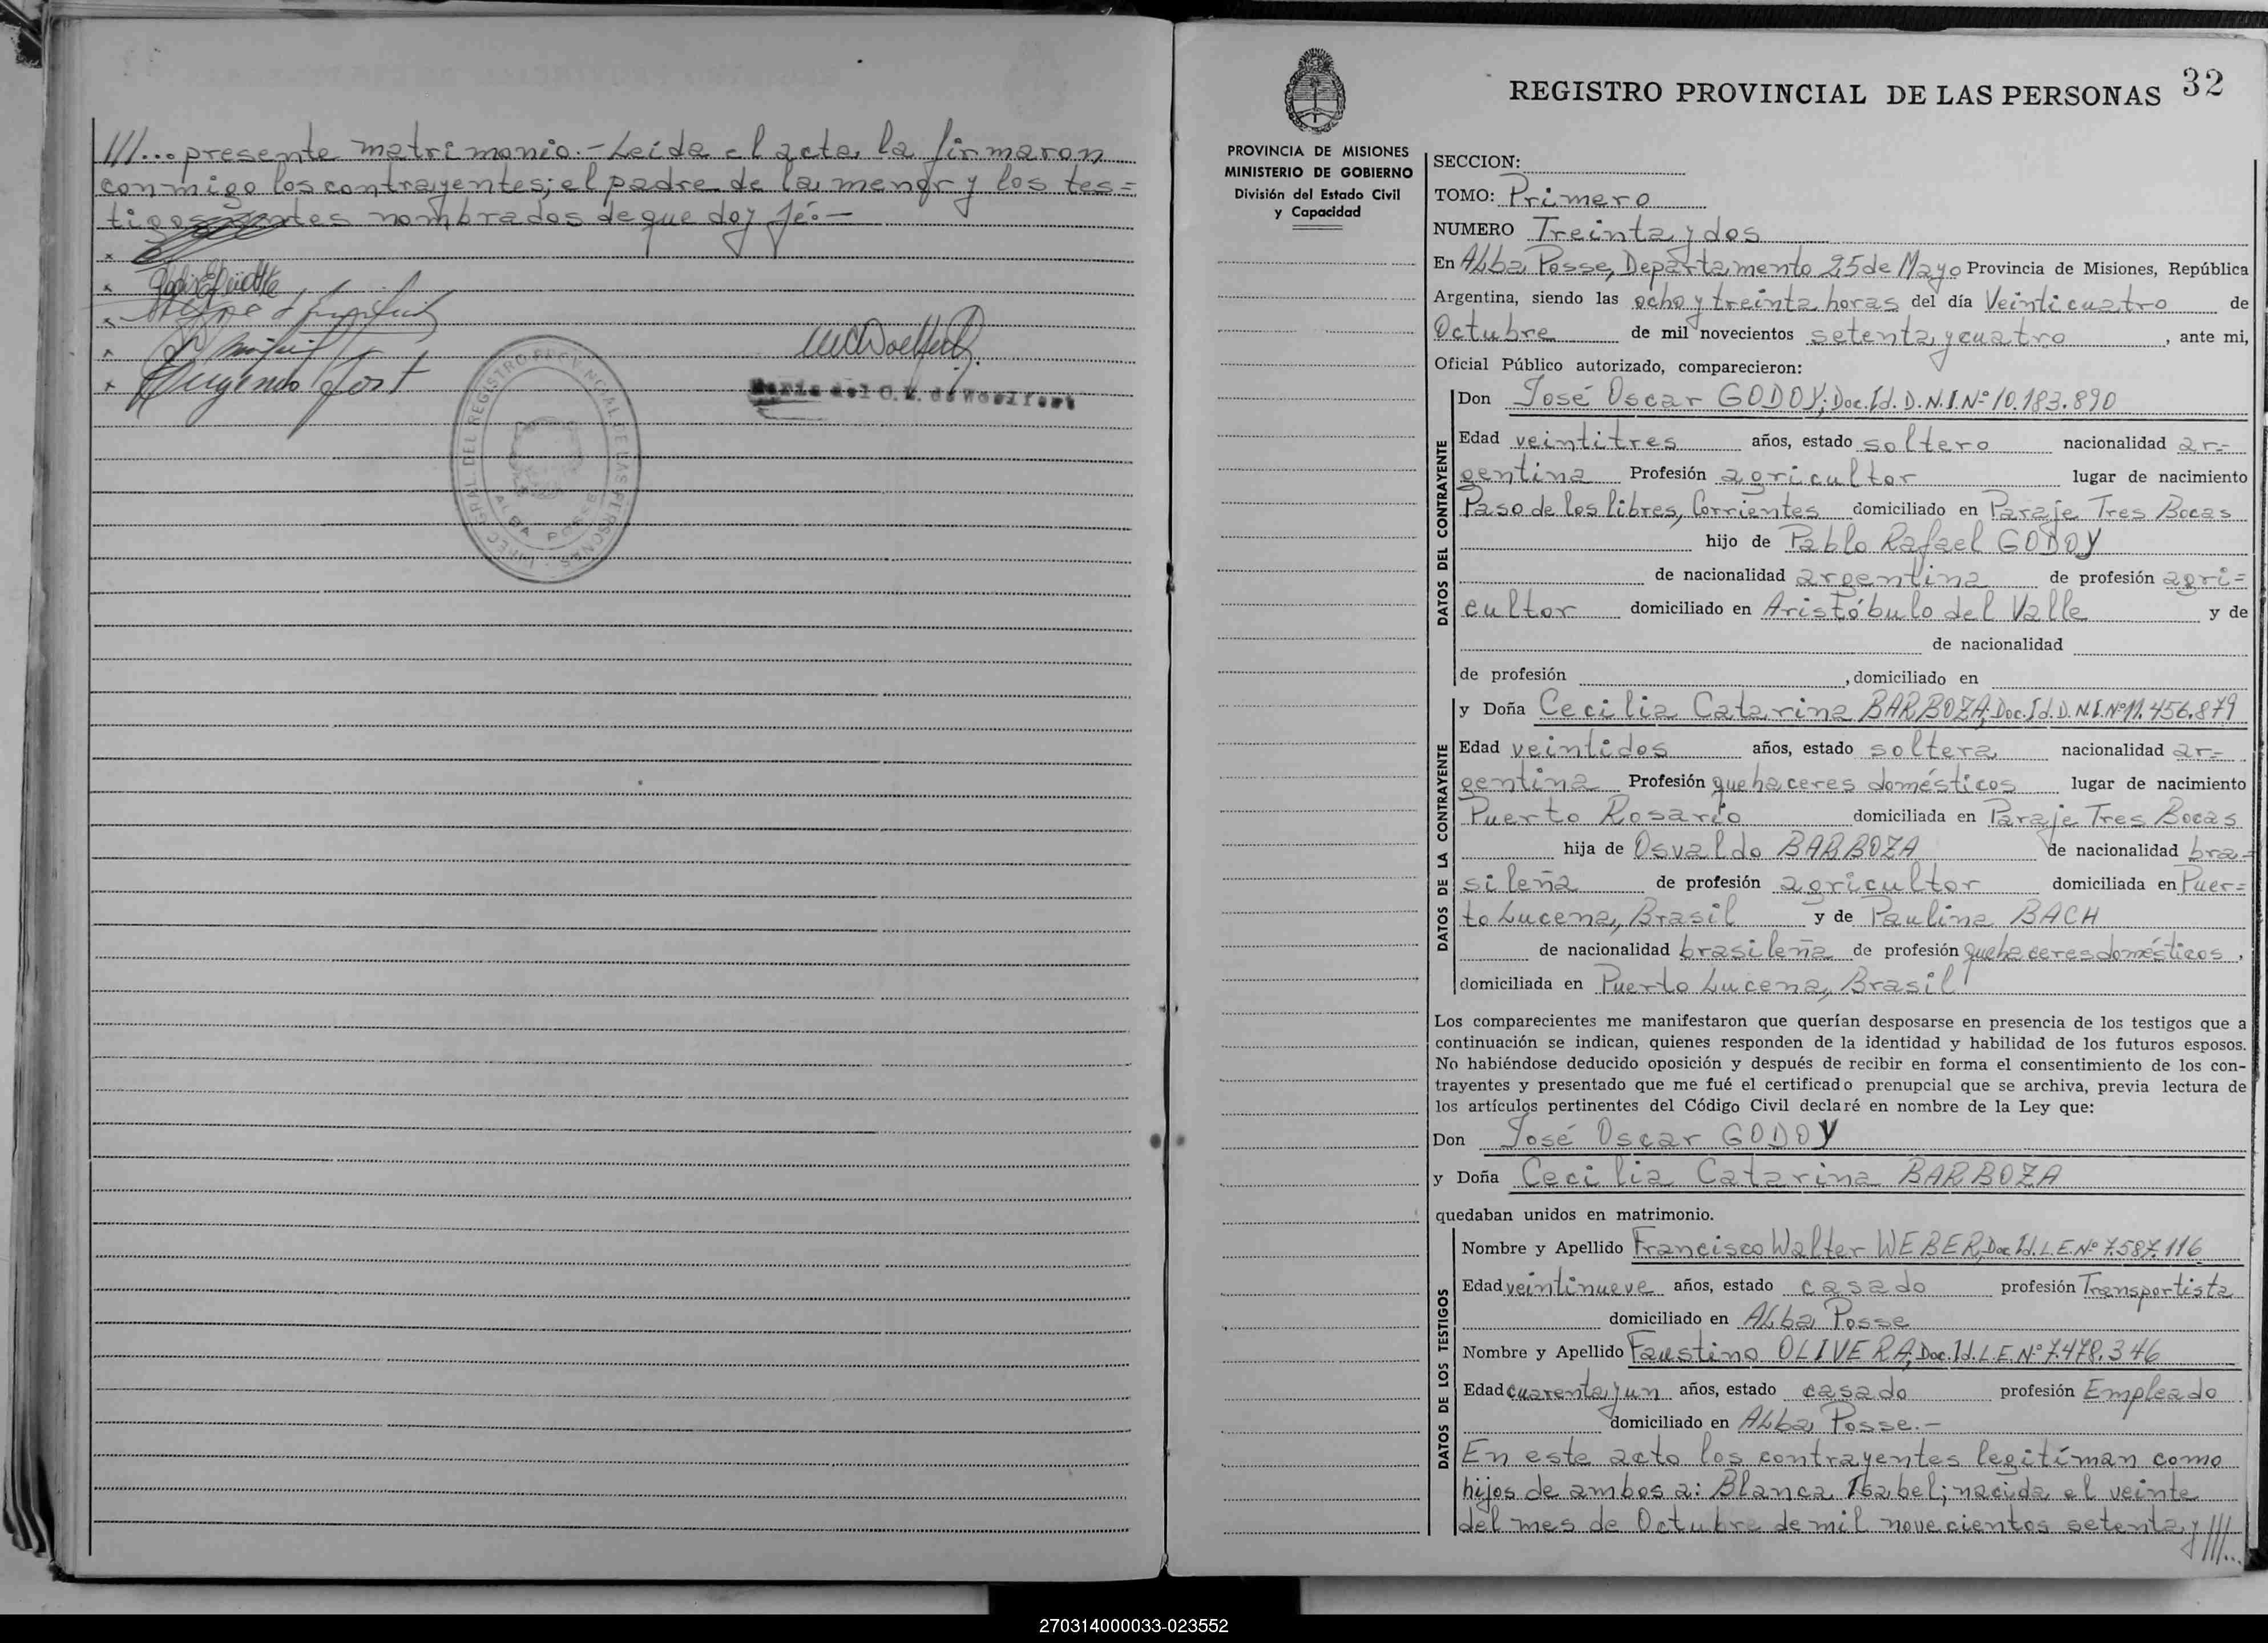 ///... presente matrimonio.- Leída el acta, la firmaron
conmigo los contrayentes; el padre de la menor y los tes=
tigos antes nombrados de que doy fé.-
Eugenio Jost
Maria del C. K. de Woelfert
ALBA POSSE
32
REGISTRO PROVINCIAL DE LAS PERSONAS
PROVINCIA DE MISIONES
MINISTERIO DE GOBIERNO
División del Estado Civil
y Capacidad
SECCION:
TOMO: Primero
NUMERO Treinta y dos
En Alba Posse, Departamento 25 de Mayo Provincia de Misiones, República
Argentina, siendo las ocho y treinta horas del día Veinticuatro de
Octubre de mil novecientos setenta y cuatro, ante mi,
Oficial Público autorizado, comparecieron:
DATOS DEL CONTRAYENTE
Don José Oscar GODOY; Doc. Id. D.N.I. Nº 10.183.890
Edad veintitres años, estado soltero nacionalidad ar=
gentina Profesión agricultor lugar de nacimiento
Paso de los libres, Corrientes domiciliado en Paraje Tres Bocas
hijo de Pablo Rafael GODOY
de nacionalidad argentina de profesión agri=
cultor domiciliado en Aristóbulo del Valle y de
de nacionalidad
de profesión , domiciliado en
DATOS DE LA CONTRAYENTE
y Doña Cecilia Catarina BARBOZA, Doc. Id. D.N.I. Nº 11.456.879
Edad veintidos años, estado soltera nacionalidad ar=
gentina Profesión quehaceres domésticos lugar de nacimiento
Puerto Rosario domiciliada en Paraje Tres Bocas
hija de Osvaldo BARBOZA de nacionalidad bra=
sileña de profesión agricultor domiciliada en Puer=
to Lucena, Brasil y de Paulina BACH
de nacionalidad brasileña de profesión quehaceres domésticos,
domiciliada en Puerto Lucena, Brasil
Los comparecientes me manifestaron que querían desposarse en presencia de los testigos que a
continuación se indican, quienes responden de la identidad y habilidad de los futuros esposos.
No habiéndose deducido oposición y después de recibir en forma el consentimiento de los con-
trayentes y presentado que me fué el certificado prenupcial que se archiva, previa lectura de
los artículos pertinentes del Código Civil declaré en nombre de la Ley que:
Don José Oscar GODOY
y Doña Cecilia Catarina BARBOZA
quedaban unidos en matrimonio.
DATOS DE LOS TESTIGOS
Nombre y Apellido Francisco Walter WEBER, Doc. Id. L.E. Nº 7.587.116
Edad veintinueve años, estado casado profesión Transportista
domiciliado en Alba Posse
Nombre y Apellido Faustino OLIVERA, Doc. Id. L.E. Nº 7.478.346
Edad cuarenta y un años, estado casado profesión Empleado
domiciliado en Alba Posse.-
En este acto los contrayentes legitíman como
hijos de ambos a: Blanca Isabel; nacida el veinte
del mes de Octubre de mil novecientos setenta y ///...
270314000033-023552